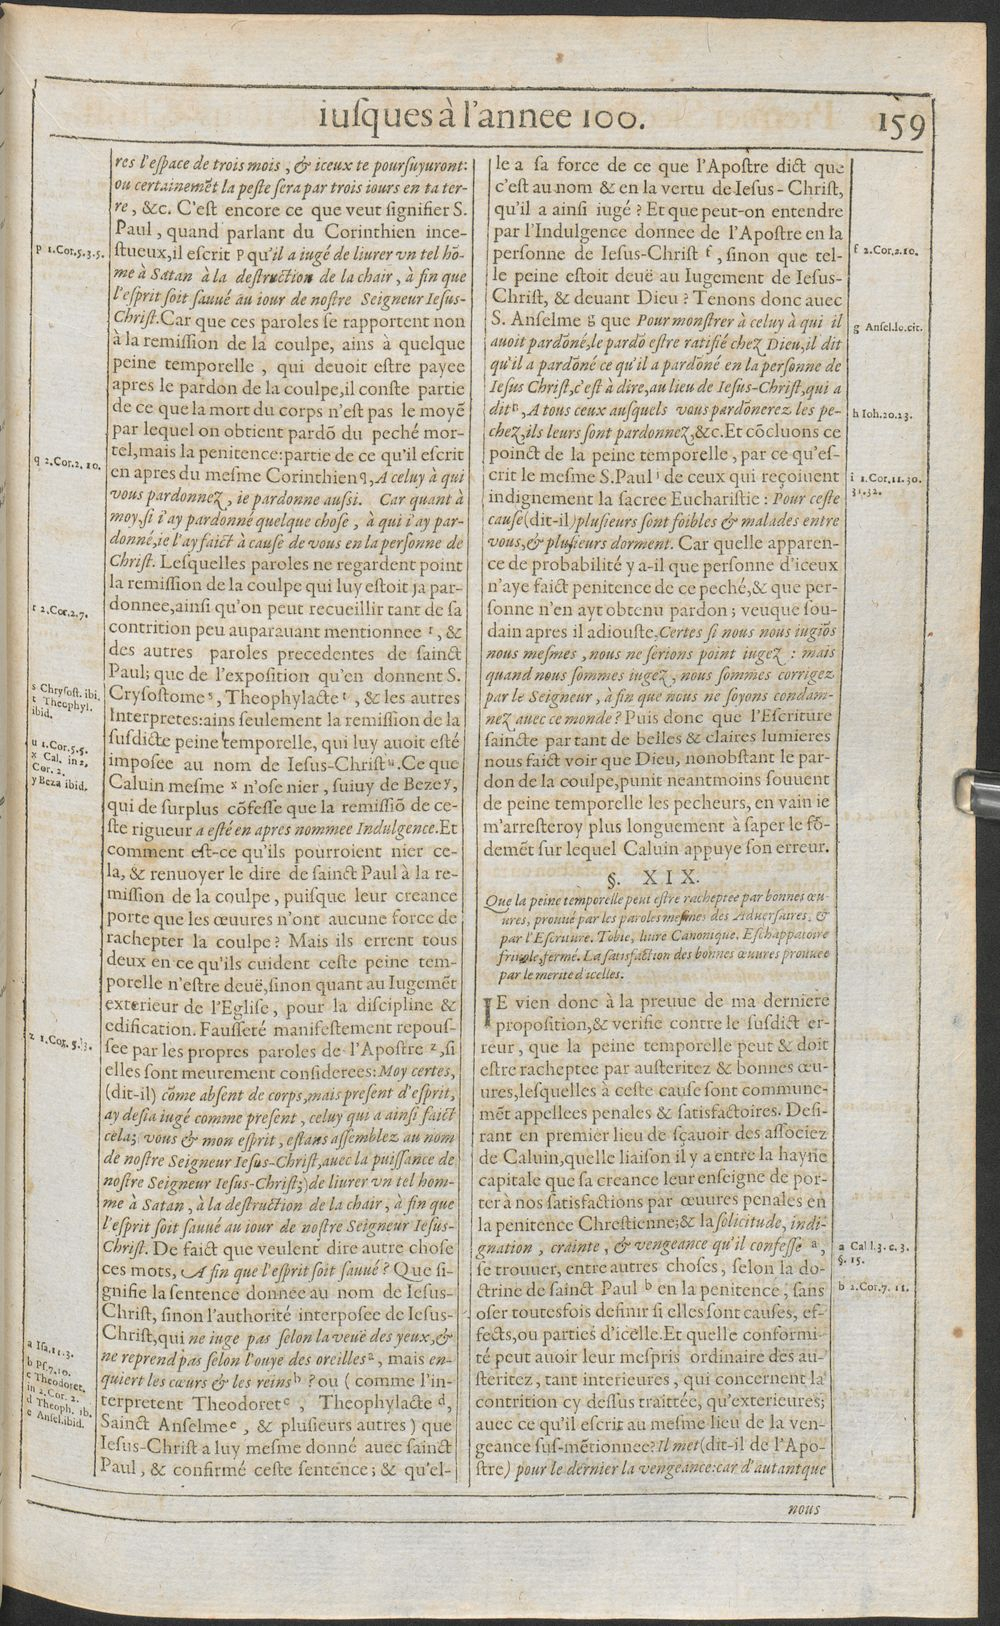 iuſques à l'annee 100.
159
res l'eſpace de trois mois, & iceux te pourſuyuront:
ou certainemẽt la peſte ſera par trois iours en ta ter-
re, &c. C'eſt encore ce que veut ſignifier S.
Paul, quand parlant du Corinthien ince-
ſtueux, il eſcrit p qu'il a iugé de liurer vn tel hõ-
me à Satan à la deſtruction de la chair, à fin que
l'eſprit ſoit ſauué au iour de noſtre Seigneur Ieſus-
Chriſt. Car que ces paroles ſe rapportent non
à la remiſſion de la coulpe, ains à quelque
peine temporelle, qui deuoit eſtre payee
apres le pardon de la coulpe, il conſte partie
de ce que la mort du corps n'eſt pas le moyẽ
par lequel on obtient pardõ du peché mor-
tel, mais la penitence: partie de ce qu'il eſcrit
en apres du meſme Corinthien q, A celuy à qui
vous pardonnez, ie pardonne auſſi. Car quant à
moy, ſi i'ay pardonné quelque choſe, à qui i'ay par-
donné, ie l'ay faict à cauſe de vous en la perſonne de
Chriſt. Leſquelles paroles ne regardent point
la remiſſion de la coulpe qui luy eſtoit ja par-
donnee, ainſi qu'on peut recueillir tant de ſa
contrition peu auparauant mentionnee r, &
des autres paroles precedentes de ſainct
Paul; que de l'expoſition qu'en donnent S.
Cryſoſtome s, Theophylacte t, & les autres
Interpretes: ains ſeulement la remiſſion de la
ſuſdicte peine temporelle, qui luy auoit eſté
impoſee au nom de Ieſus-Chriſt u. Ce que
Caluin meſme x n'oſe nier, ſuiuy de Beze y,
qui de ſurplus cõfeſſe que la remiſſiõ de ce-
ſte rigueur a eſté en apres nommee Indulgence. Et
comment eſt-ce qu'ils pourroient nier ce-
la, & renuoyer le dire de ſainct Paul à la re-
miſſion de la coulpe, puiſque leur creance
porte que les œuures n'ont aucune force de
rachepter la coulpe? Mais ils errent tous
deux en ce qu'ils cuident ceſte peine tem-
porelle n'eſtre deuë, ſinon quant au Iugemẽt
exterieur de l'Egliſe, pour la diſcipline &
edification. Fauſſeté manifeſtement repouſ-
ſee par les propres paroles de l'Apoſtre z, ſi
elles ſont meurement conſiderees: Moy certes,
(dit-il) cõme abſent de corps, mais preſent d'eſprit,
ay deſia iugé comme preſent, celuy qui a ainſi faict
cela; vous & mon eſprit, eſtans aſſemblez au nom
de noſtre Seigneur Ieſus-Chriſt, auec la puiſſance de
noſtre Seigneur Ieſus-Chriſt;) de liurer vn tel hom-
me à Satan, à la deſtruction de la chair, à fin que
l'eſprit ſoit ſauué au iour de noſtre Seigneur Ieſus-
Chriſt. De faict que veulent dire autre choſe
ces mots, A fin que l'eſprit ſoit ſauué? Que ſi-
gnifie la ſentence donnee au nom de Ieſus-
Chriſt, ſinon l'authorité interpoſee de Ieſus-
Chriſt, qui ne iuge pas ſelon la veuë des yeux, &
ne reprend pas ſelon l'ouye des oreilles a, mais en-
quiert les cœurs & les reins b? ou (comme l'in-
terpretent Theodoret c, Theophylacte d,
Sainct Anſelme e, & pluſieurs autres) que
Ieſus-Chriſt a luy meſme donné auec ſainct
Paul, & confirmé ceſte ſentence; & qu'el-
p 1.Cor.5.3.5.
q 2.Cor.2.10.
r 2.Cor.2.7.
s Chryſoſt. ibi.
t Theophyl.
ibid.
u 1.Cor.5.5.
x Cal. in 2.
Cor. 2.
y Beza ibid.
z 1.Cor.5.3.
a Iſa.11.3.
b Pſ.7.10.
c Theodoret.
in 2.Cor. 2.
d Theoph. ib.
e Anſel.ibid.
le a ſa force de ce que l'Apoſtre dict que
c'eſt au nom & en la vertu de Ieſus-Chriſt,
qu'il a ainſi iugé? Et que peut-on entendre
par l'Indulgence donnee de l'Apoſtre en la
perſonne de Ieſus-Chriſt f, ſinon que tel-
le peine eſtoit deuë au Iugement de Ieſus-
Chriſt, & deuant Dieu? Tenons donc auec
S. Anſelme g que Pour monſtrer à celuy à qui il
auoit pardõné, le pardõ eſtre ratifié chez Dieu, il dit
qu'il a pardõné ce qu'il a pardõné en la perſonne de
Ieſus Chriſt, c'eſt à dire, au lieu de Ieſus-Chriſt, qui a
dit h, A tous ceux auſquels vous pardõnerez les pe-
chez, ils leurs ſont pardonnez, &c. Et cõcluons ce
poinct de la peine temporelle, par ce qu'eſ-
crit le meſme S. Paul i de ceux qui reçoiuent
indignement la ſacree Euchariſtie: Pour ceſte
cauſe (dit-il) pluſieurs ſont foibles & malades entre
vous, & pluſieurs dorment. Car quelle apparen-
ce de probabilité y a-il que perſonne d'iceux
n'aye faict penitence de ce peché, & que per-
ſonne n'en ayt obtenu pardon; veu que ſou-
dain apres il adiouſte. Certes ſi nous nous iugiõs
nous meſmes, nous ne ſerions point iugez: mais
quand nous ſommes iugez, nous ſommes corrigez
par le Seigneur, à fin que nous ne ſoyons condam-
nez auec ce monde? Puis donc que l'Eſcriture
ſaincte par tant de belles & claires lumieres
nous faict voir que Dieu, nonobſtant le par-
don de la coulpe, punit neantmoins ſouuent
de peine temporelle les pecheurs, en vain ie
m'arreſteroy plus longuement à ſaper le fõ-
demẽt ſur lequel Caluin appuye ſon erreur.
§. XIX.
Que la peine temporelle peut eſtre racheptee par bonnes œu-
ures, prouué par les paroles meſmes des Aduerſaires, &
par l'Eſcriture. Tobie, liure Canonique. Eſchappatoire
friuole, fermé. La ſatisfaction des bonnes œuures prouuee
par le merite d'icelles.
IE vien donc à la preuue de ma derniere
propoſition, & verifie contre le ſuſdict er-
reur, que la peine temporelle peut & doit
eſtre racheptee par auſteritez & bonnes œu-
ures, leſquelles à ceſte cauſe ſont commune-
mẽt appellees penales & ſatisfactoires. Deſi-
rant en premier lieu de ſçauoir des aſſociez
de Caluin, quelle liaiſon il y a entre la hayne
capitale que ſa creance leur enſeigne de por-
ter à nos ſatisfactions par œuures penales en
la penitence Chreſtienne; & la ſolicitude, indi-
gnation, crainte, & vengeance qu'il confeſſe a,
ſe trouuer, entre autres choſes, ſelon la do-
ctrine de ſainct Paul b en la penitence, ſans
oſer toutesfois definir ſi elles ſont cauſes, ef-
fects, ou parties d'icelle. Et quelle conformi-
té peut auoir leur meſpris ordinaire des au-
ſteritez, tant interieures, qui concernent la
contrition cy deſſus traittée, qu'exterieures;
auec ce qu'il eſcrit au meſme lieu de la ven-
geance ſuſ-mẽtionnee? Il met (dit-il de l'Apo-
ſtre) pour le dernier la vengeance: car d'autant que
nous
f 2.Cor.2.10.
g Anſel.lo.cit.
h Ioh.20.23.
i 1.Cor.11.30.
31.32.
a Cal l.3. c.3.
§. 15.
b 2.Cor.7. 11.